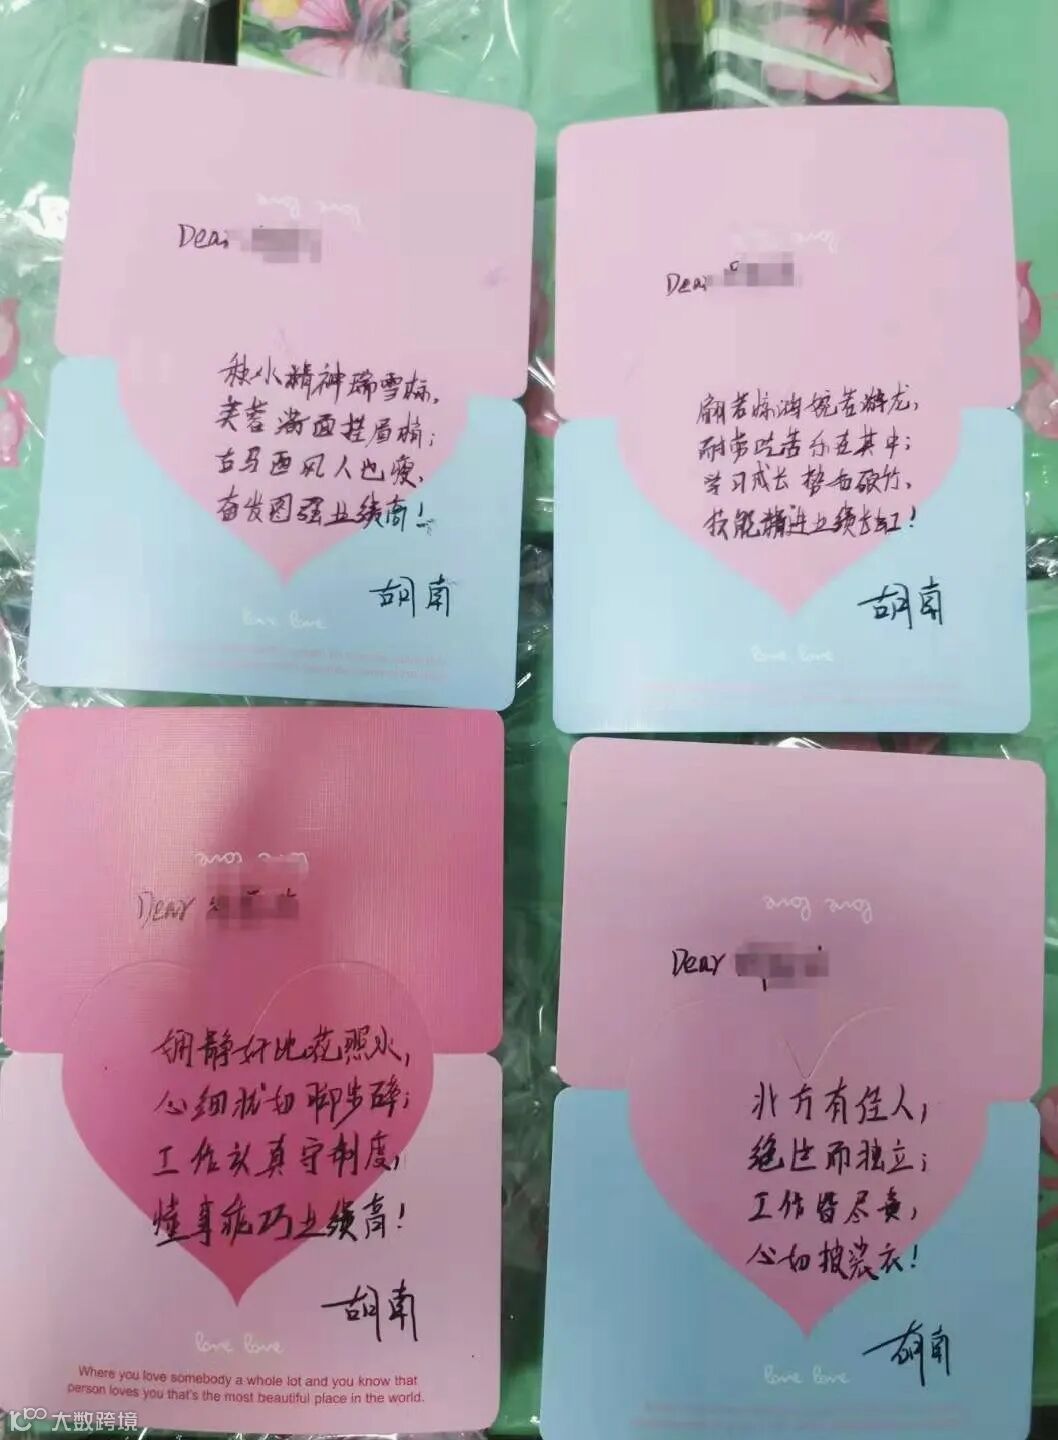 love love
Dear
秋水精神瑞雪标,
芙蓉满面挂眉梢;
古马西风人也瘦,
奋发图强业绩高!
胡南
love love
love love
Dear
翩若惊鸿婉若游龙,
耐劳吃苦乐在其中;
学习成长势如破竹,
技能精进业绩长虹!
胡南
love love
love love
Dear
娴静好比花照水,
心细犹如脚步碎;
工作认真守制度,
懂事乖巧业绩高!
胡南
love love
Where you love somebody a whole lot and you know that
person loves you that's the most beautiful place in the world.
love love
Dear
北方有佳人,
绝世而独立;
工作皆尽责,
心切披裳衣!
胡南
love love
大数跨境